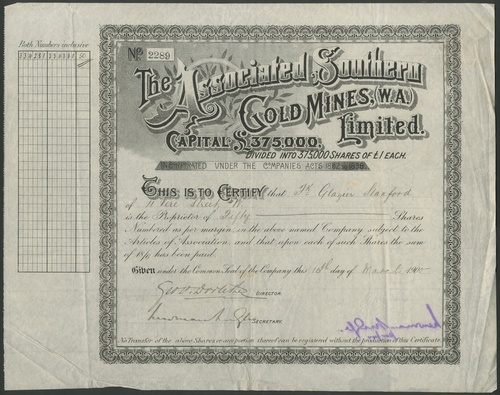 Both Numbers inclusive
No. 2289
The Associated Southern
Gold Mines, (W.A.)
Limited.
Capital £375,000.
Divided into 375,000 Shares of £1 each.
Incorporated under the Companies Acts
This is to Certify that
of 11 Vere Street, W.
is the Proprietor of Fifty Shares
Numbered as per margin, in the above named Company subject to the
Articles of Association, and that upon each of such Shares the sum
of 18/- has been paid.
Given under the Common Seal of the Company this day of March
Director
Secretary
No Transfer of the above Shares or any portion thereof can be registered without the production of this Certificate.